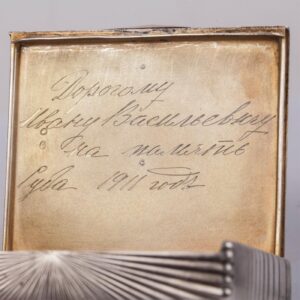 Дорогому
Ивану Васильевичу
на память
1911 года